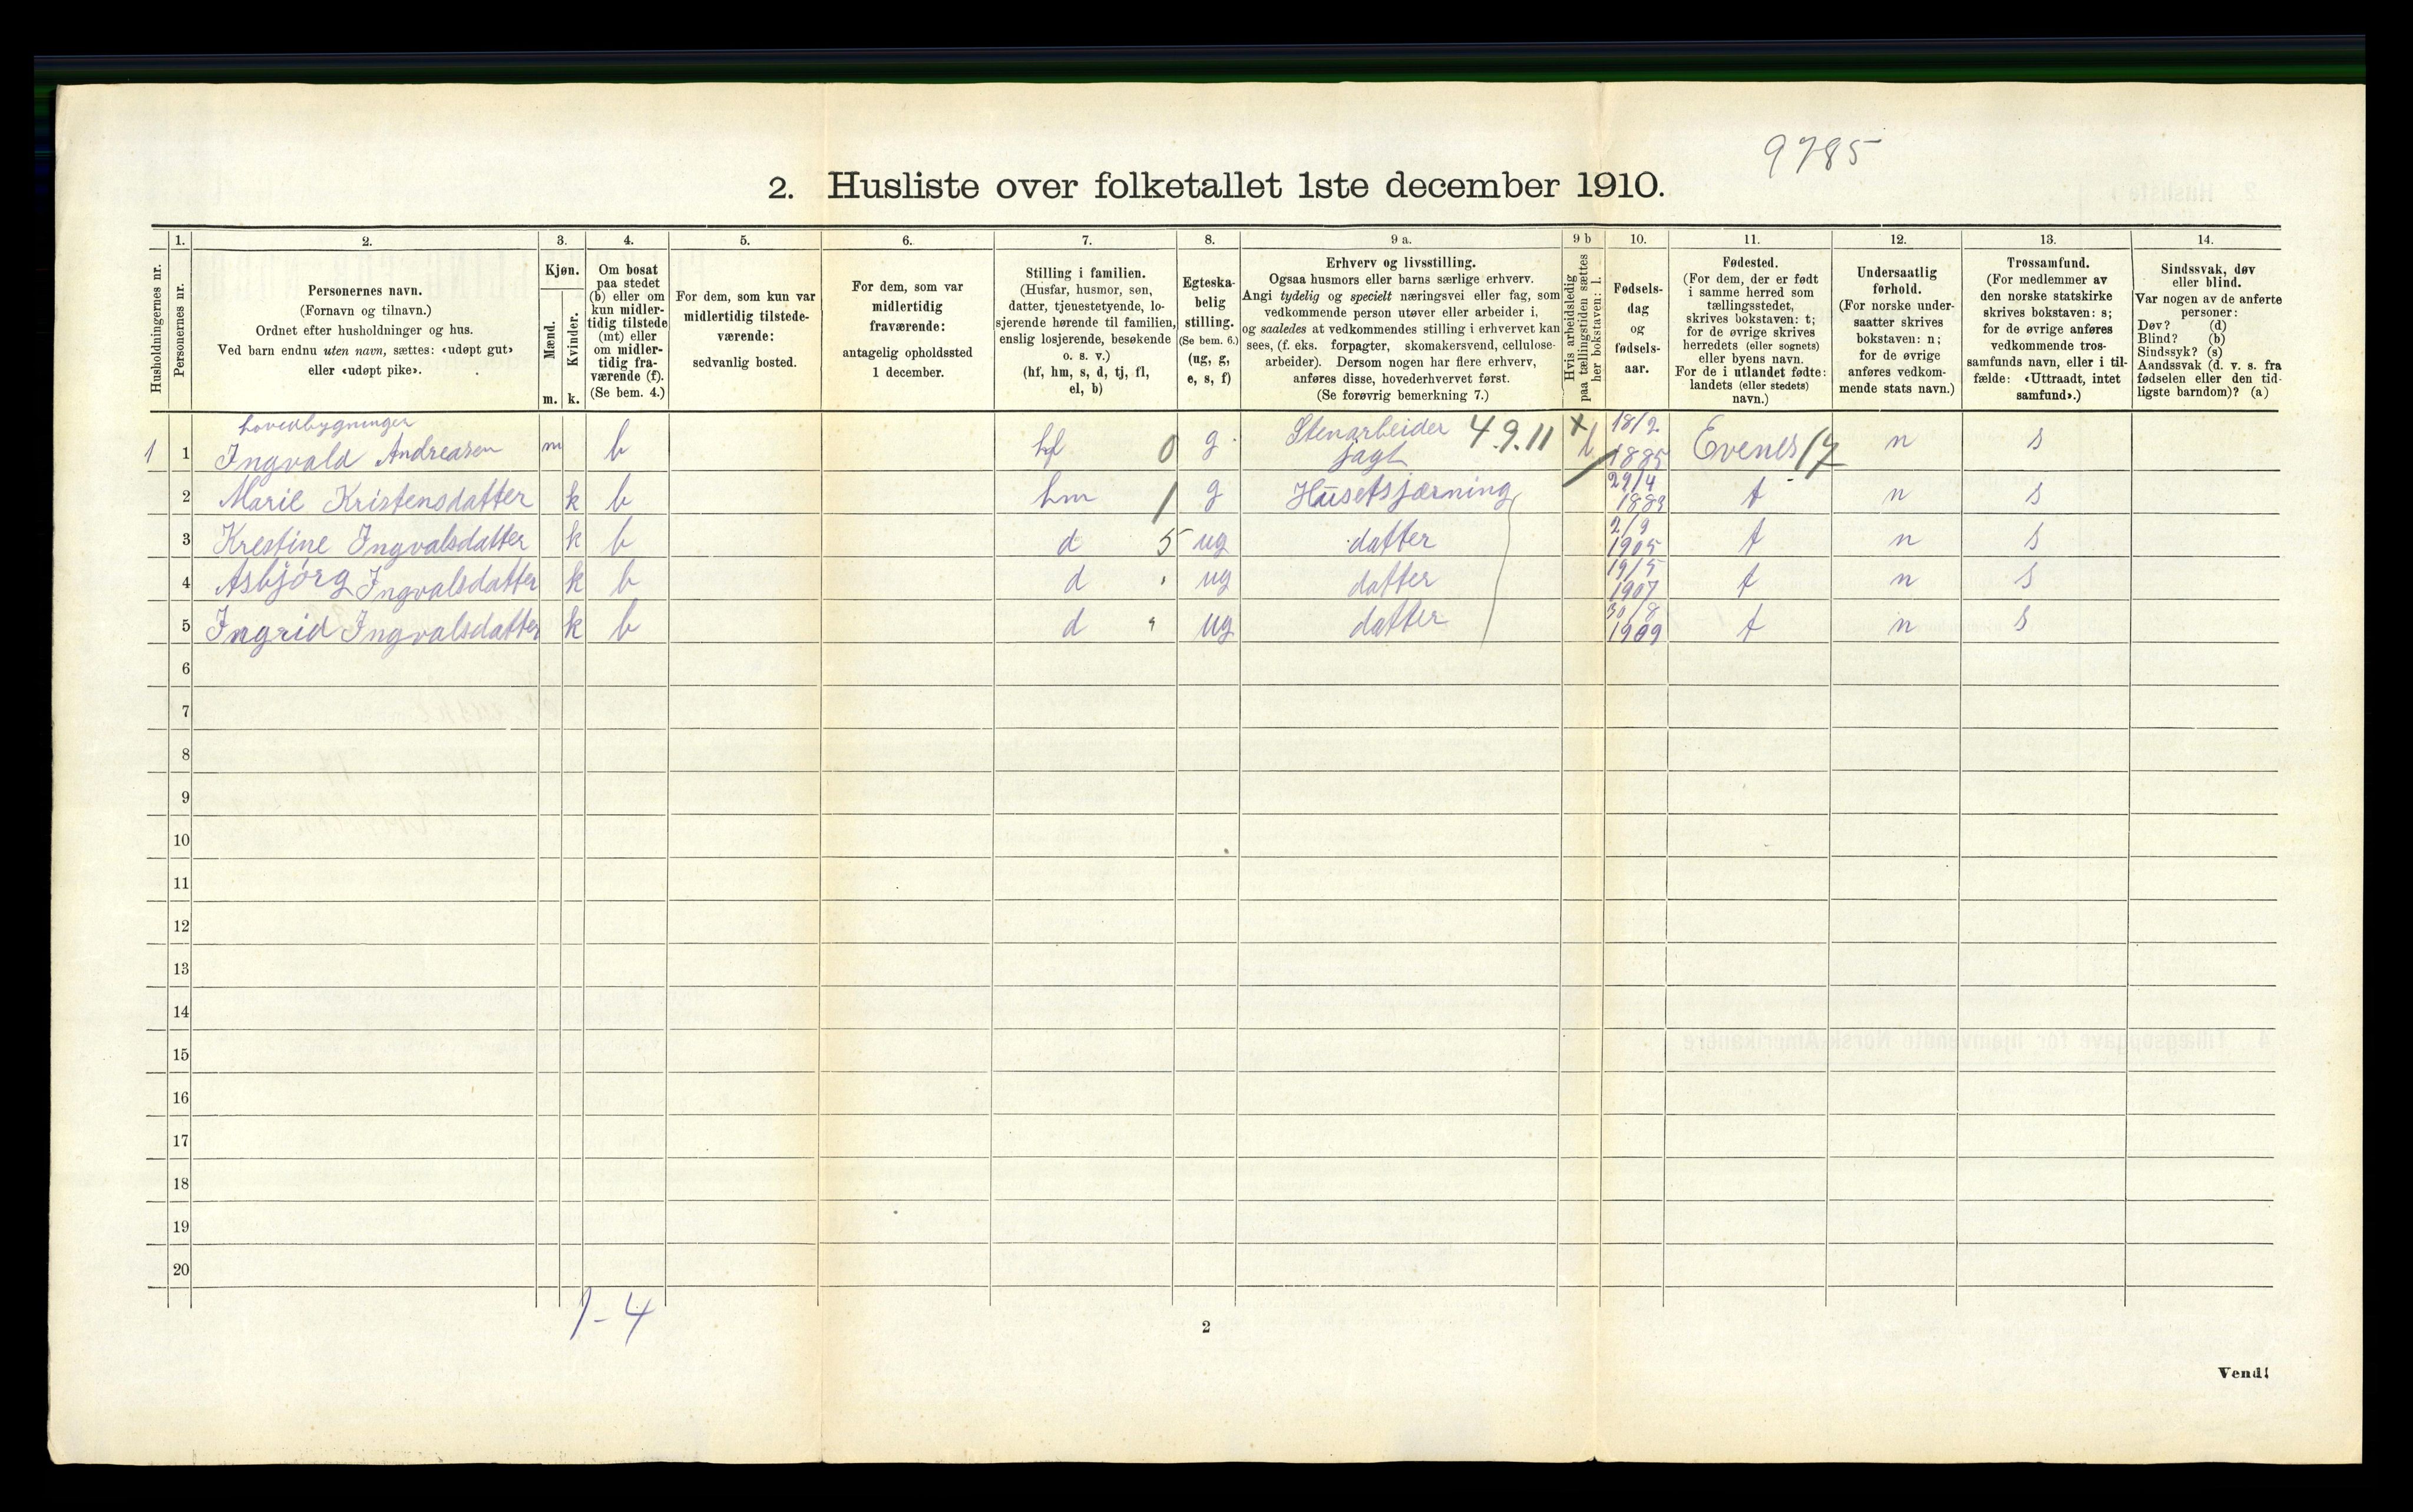 9785
2. Husliste over folketallet 1ste december 1910.
Husholdningernes nr.
1.
Personernes nr.
2.
Personernes navn.
(Fornavn og tilnavn.)
Ordnet efter husholdninger og hus.
Ved barn endnu uten navn, sættes: «udøpt gut»
eller «udøpt pike».
3.
Kjøn.
Mænd.
Kvinder.
m. k.
4.
Om bosat
paa stedet
(b) eller om
kun midler-
tidig tilstede
(mt) eller
om midler-
tidig fra-
værende (f).
(Se bem. 4.)
5.
For dem, som kun var
midlertidig tilstede-
værende:
sedvanlig bosted.
6.
For dem, som var
midlertidig
fraværende:
antagelig opholdssted
1 december.
7.
Stilling i familien.
(Husfar, husmor, søn,
datter, tjenestetyende, lo-
sjerende hørende til familien,
enslig losjerende, besøkende
o. s. v.)
(hf, hm, s, d, tj, fl,
el, b)
8.
Egteska-
belig
stilling.
(Se bem. 6.)
(ug, g,
e, s, f)
9 a.
Erhverv og livsstilling.
Ogsaa husmors eller barns særlige erhverv.
Angi tydelig og specielt næringsvei eller fag, som
vedkommende person utøver eller arbeider i,
og saaledes at vedkommendes stilling i erhvervet kan
sees, (f. eks. forpagter, skomakersvend, cellulose-
arbeider). Dersom nogen har flere erhverv,
anføres disse, hovederhvervet først.
(Se forøvrig bemerkning 7.)
9 b
Hvis arbeidsledig
paa tællingstiden sættes
her bokstaven: l.
10.
Fødsels-
dag
og
fødsels-
aar.
11.
Fødested.
(For dem, der er født
i samme herred som
tællingsstedet,
skrives bokstaven: t;
for de øvrige skrives
herredets (eller sognets)
eller byens navn.
For de i utlandet fødte:
landets (eller stedets)
navn.)
12.
Undersaatlig
forhold.
(For norske under-
saatter skrives
bokstaven: n;
for de øvrige
anføres vedkom-
mende stats navn.)
13.
Trossamfund.
(For medlemmer av
den norske statskirke
skrives bokstaven: s;
for de øvrige anføres
vedkommende tros-
samfunds navn, eller i til-
fælde: «Uttraadt, intet
samfund».)
14.
Sindssvak, døv
eller blind.
Var nogen av de anførte
personer:
Døv? (d)
Blind? (b)
Sindssyk? (s)
Aandssvak (d. v. s. fra
fødselen eller den tid-
ligste barndom)? (a)
hovedbygninger
1 1 Ingvald Andreasen m b hf 0 g Stenarbeider 4.9.11 x l 18/2 1885 Evenes 17 n s
jagt
2 Marie Kristensdatter k b hm 1 g Husetsjærning 29/4 1883 t n s
3 Krestine Ingvalsdatter k b d 5 ug datter 2/9 1905 t n s
4 Asbjørg Ingvalsdatter k b d ug datter 19/5 1907 t n s
5 Ingrid Ingvalsdatter k b d ug datter 30/8 1909 t n s
6
7
8
9
10
11
12
13
14
15
16
17
18
19
20
1-4
2
Vend!